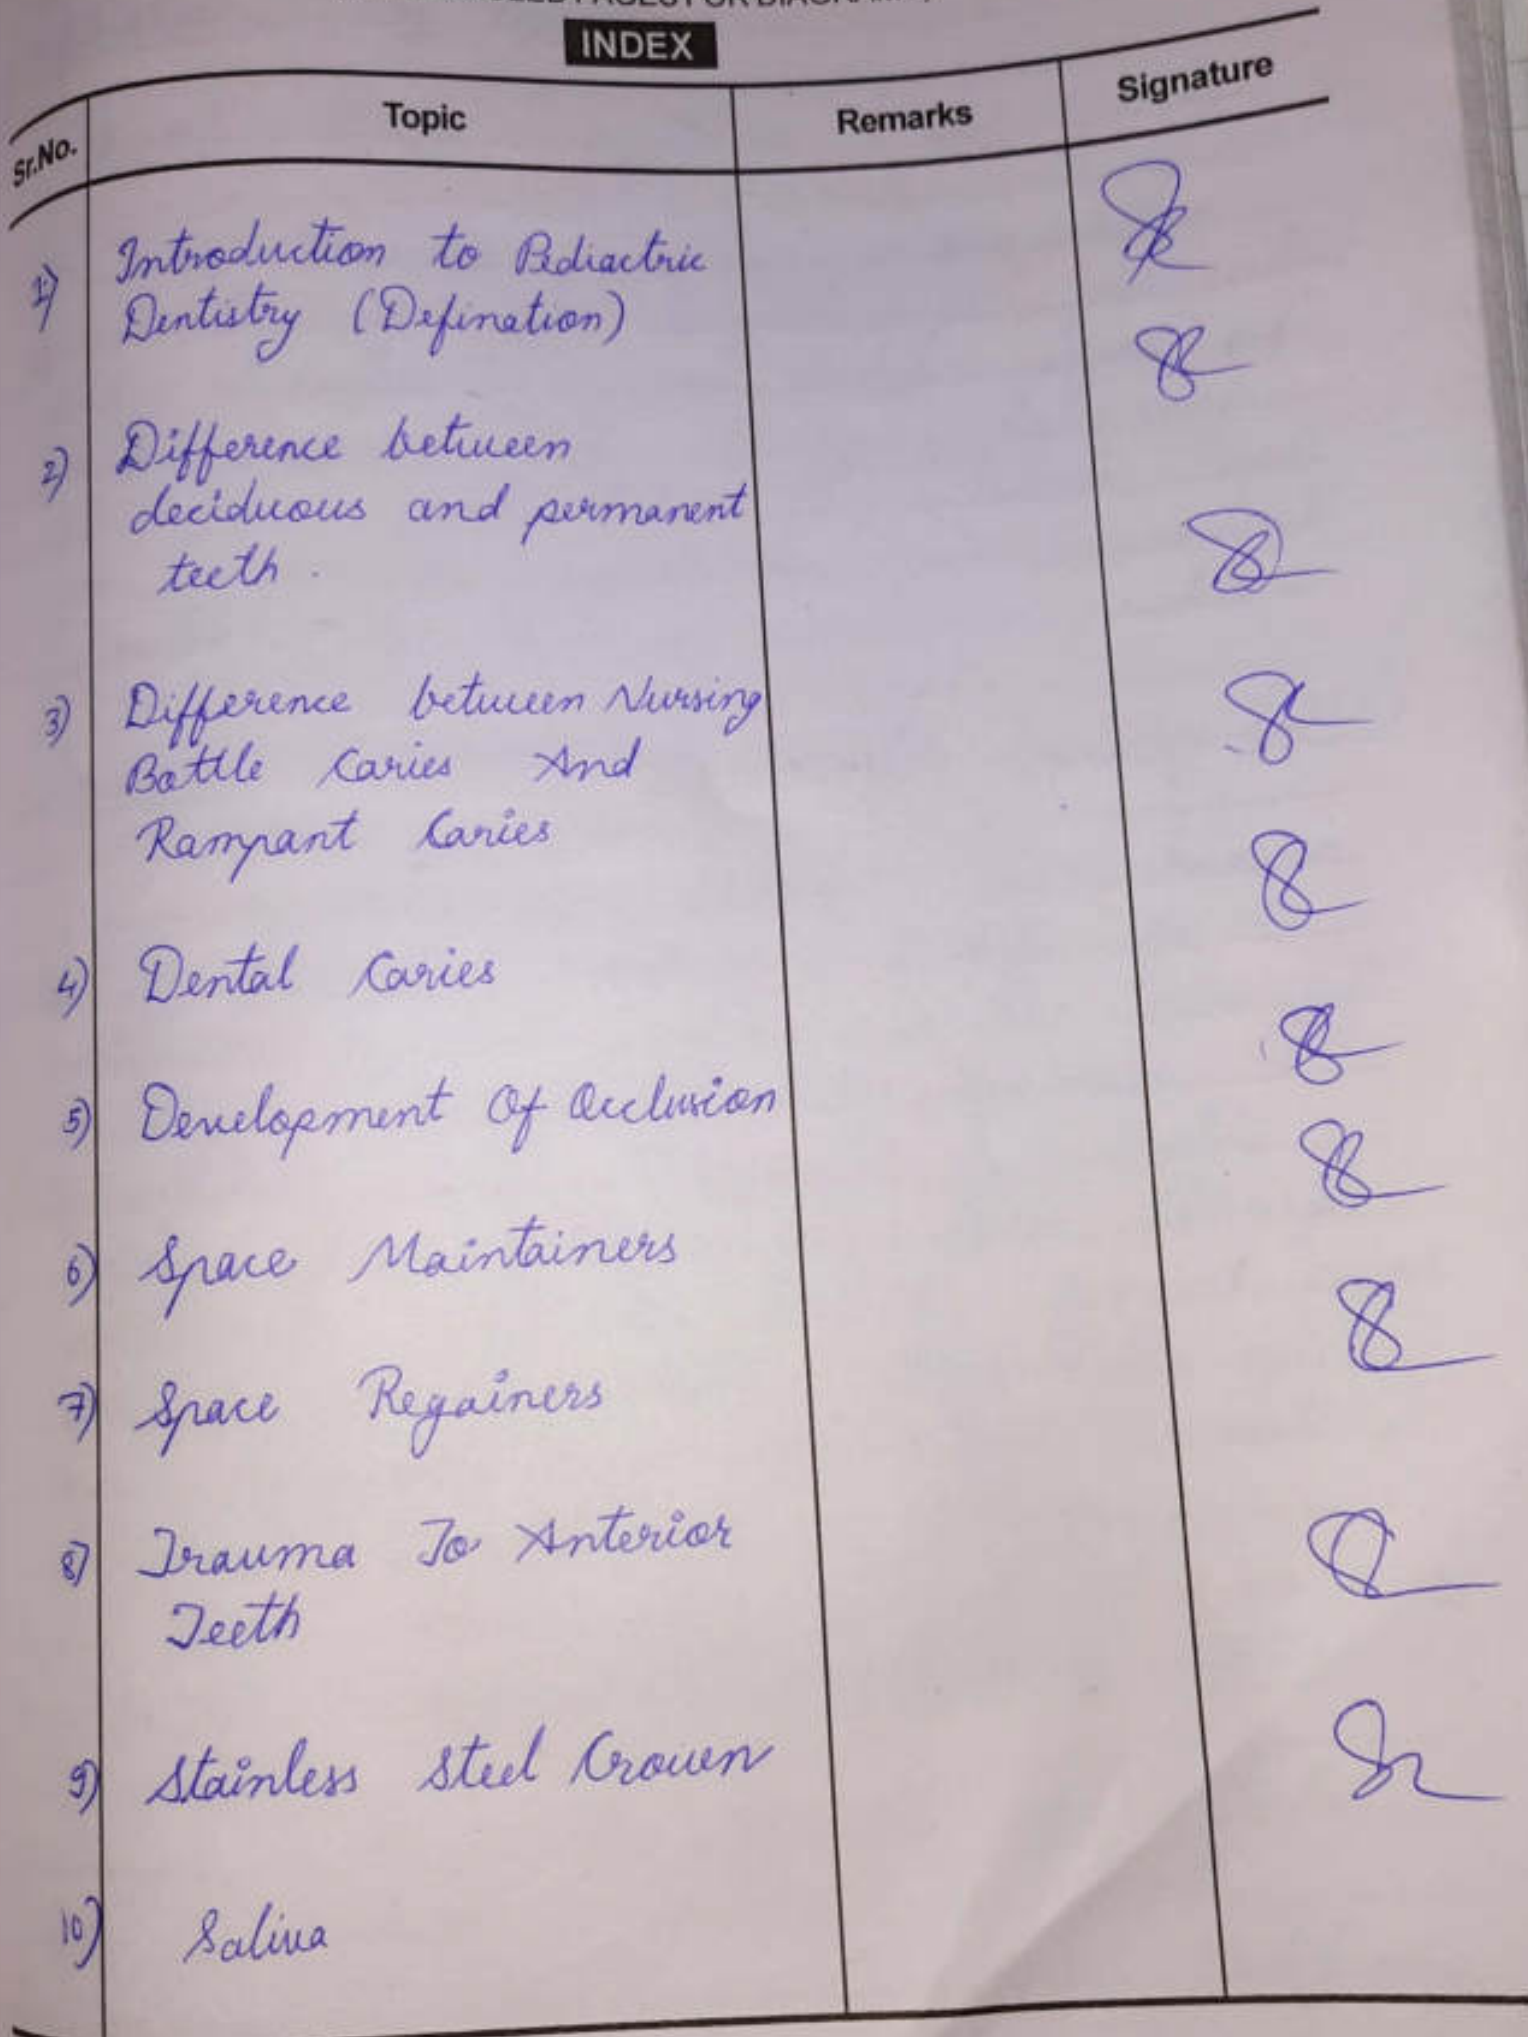 INDEX
Sr.No. Topic Remarks Signature
1) Introduction to Pediactric
Dentistry (Defination)
2) Difference between
deciduous and permanent
teeth.
3) Difference between Nursing
Bottle Caries And
Rampant Caries
4) Dental Caries
5) Development Of Occlusion
6) Space Maintainers
7) Space Regainers
8) Trauma To Anterior
Teeth
9) Stainless Steel Crown
10) Saliva